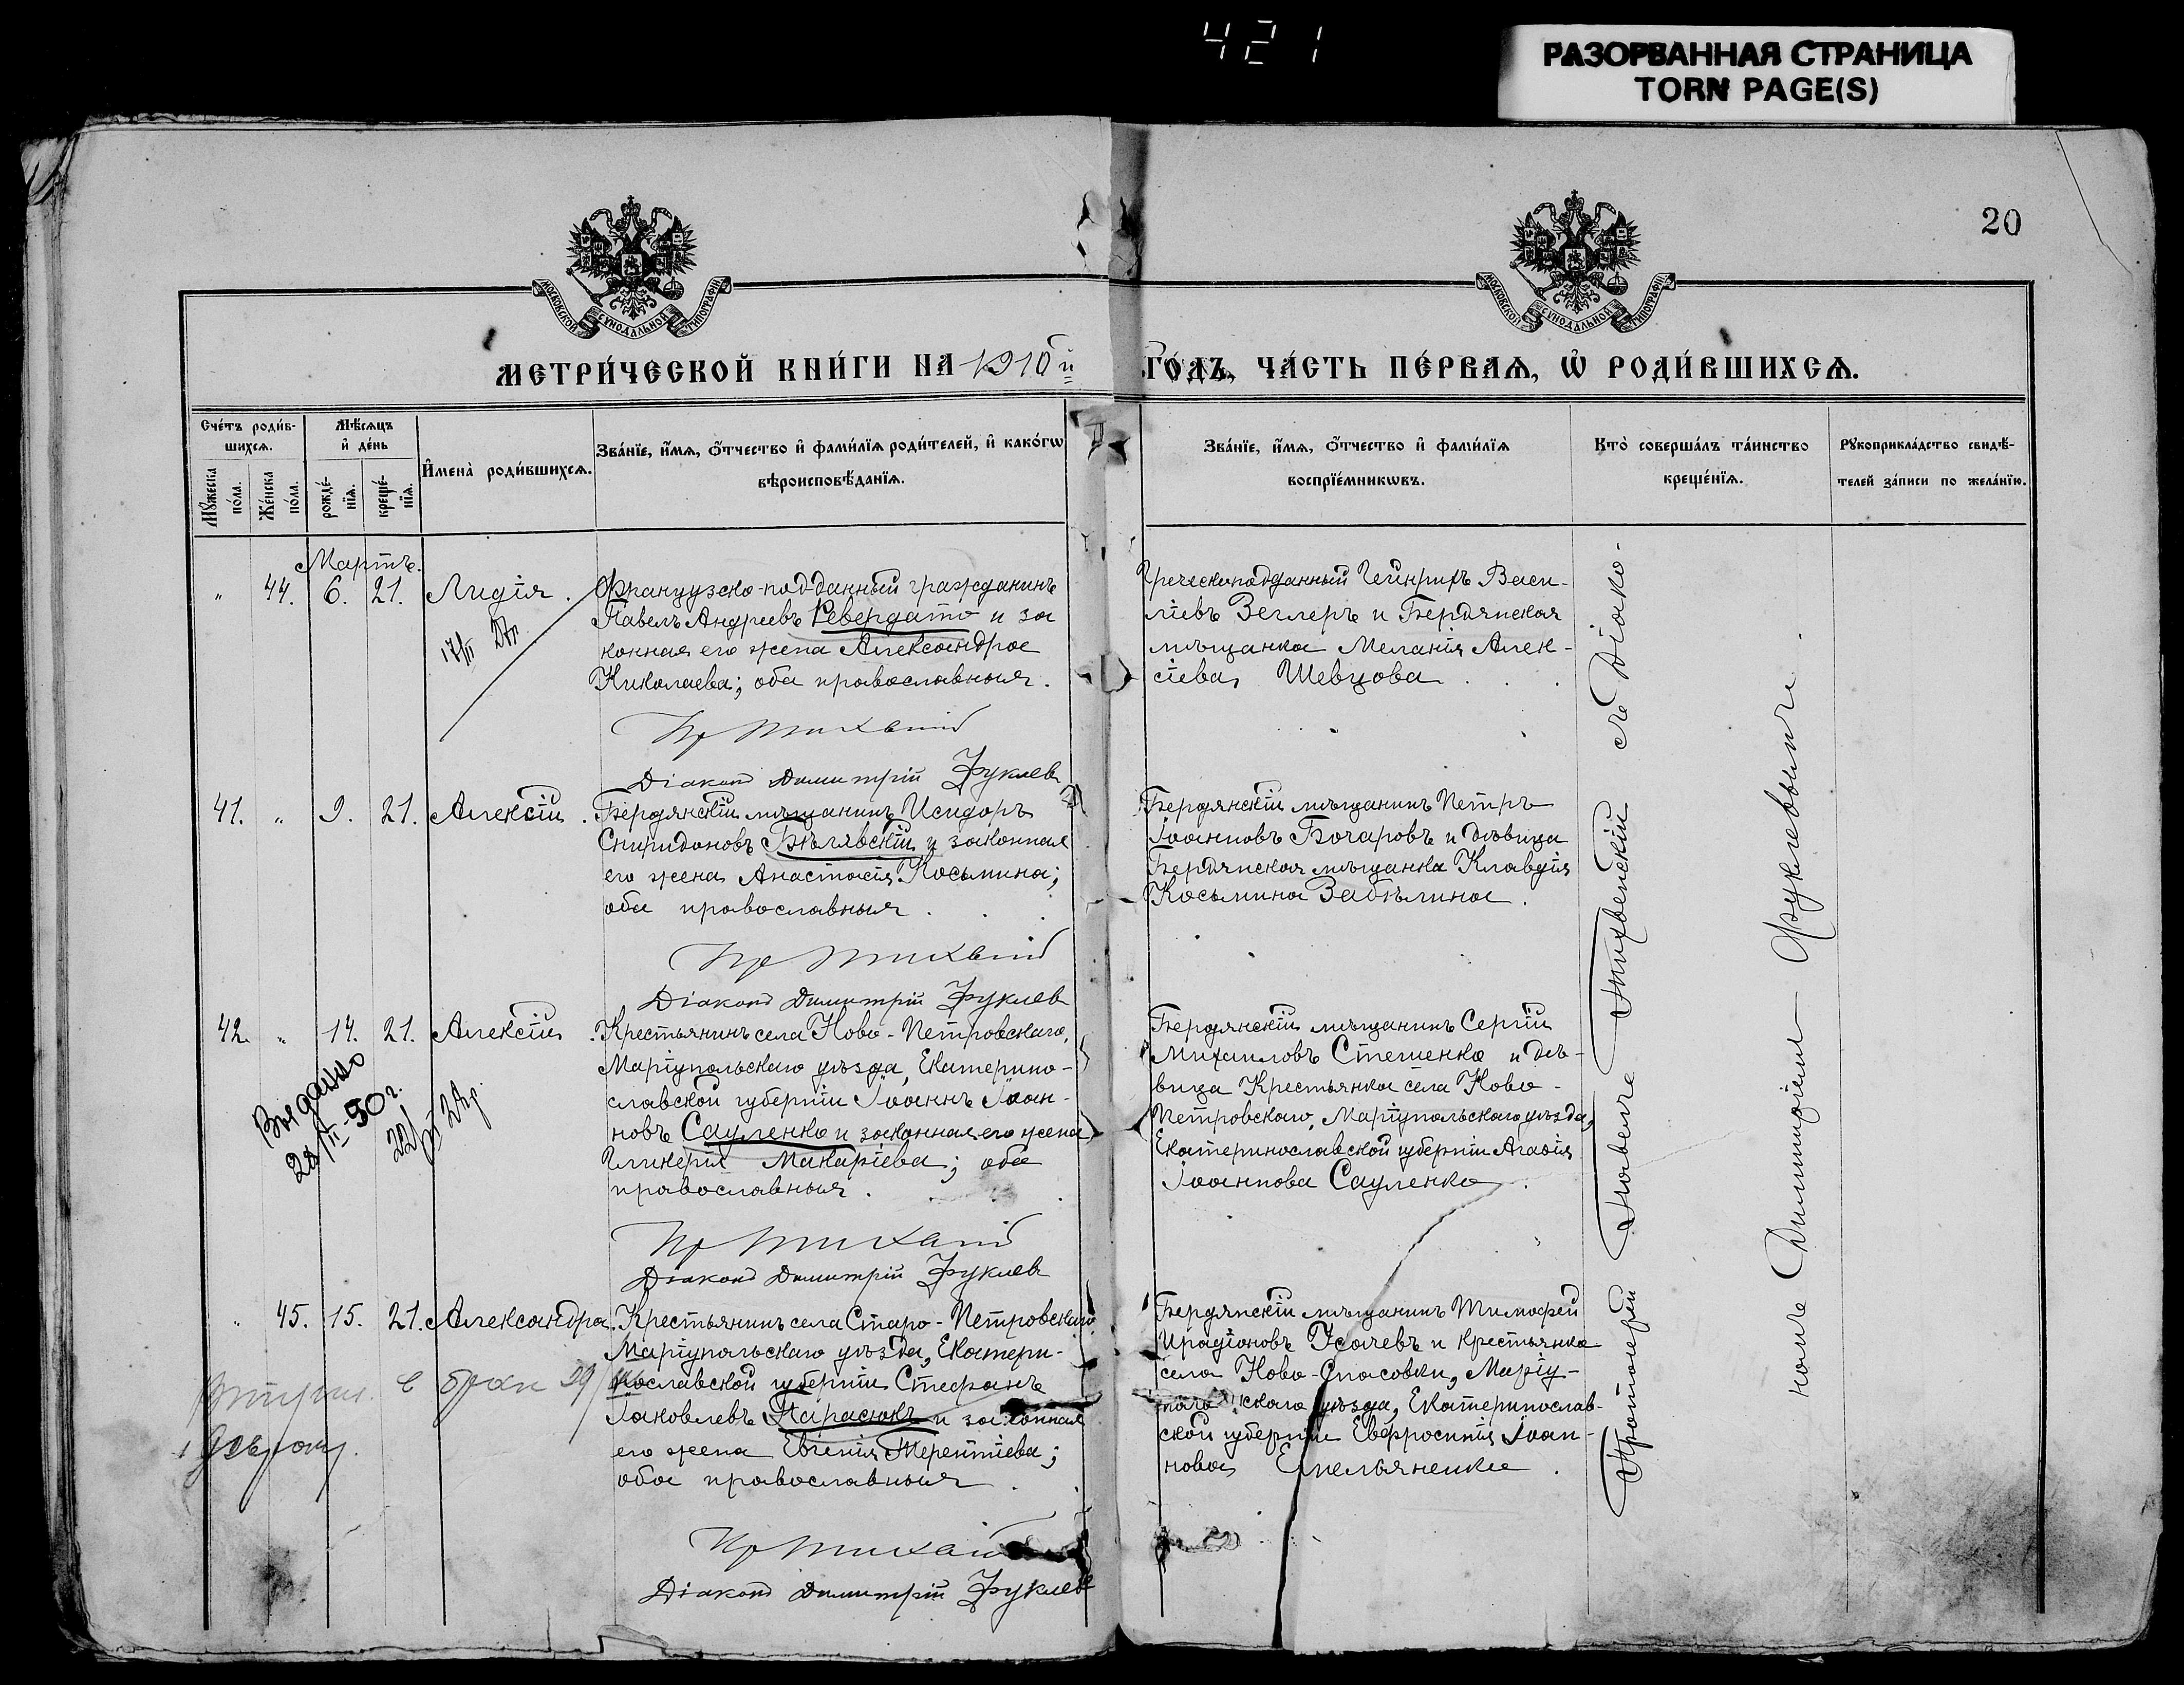 421
РАЗОРВАННАЯ СТРАНИЦА
TORN PAGE(S)
20
МОСКОВСКОЙ СѴНОДАЛЬНОЙ ТИПОГРАФІИ
МОСКОВСКОЙ СѴНОДАЛЬНОЙ ТИПОГРАФІИ
МЕТРИ́ЧЕСКОЙ КНИ́ГИ НА 1910й ГО́ДЪ, ЧА́СТЬ ПЕ́РВАѦ, Ѡ҆ РОДИ́ВШИХСѦ.
Сче́тъ роди́в-
шихсѧ.
Мѣ́сѧцъ
и҆ де́нь
Мꙋ́жеска по́ла.
Же́нска по́ла.
рожде́-
нїѧ.
креще́-
нїѧ.
И҆мена̀ роди́вшихсѧ.
Зва́нїе, и҆́мѧ, ѻ҆́тчество и҆ фами́лїѧ роди́телей, и҆ како́гѡ
вѣроисповѣ́данїѧ.
Зва́нїе, и҆́мѧ, ѻ҆́тчество и҆ фами́лїѧ
воспрїе́мникѡвъ.
Кто̀ соверша́лъ та́инство
креще́нїѧ.
Рꙋкоприкла́дство свидѣ́-
телей за́писи по жела́нїю.
Мартъ.
" 44. 6. 21. Лидія.
Французско-подданный гражданинъ
Павелъ Андреевъ Ревердатто и за
конная его жена Александра
Николаева; оба православныя.
Пр Тихвинскій
Діаконъ Димитрій Фуклевъ
Греческоподданный Гейнрихъ Васи-
ліевъ Зеглеръ и Бердянская
мѣщанка Меланія Алек-
сіева Шевцова
41. " 9. 21. Алексій.
Бердянскій мѣщанинъ Исидоръ
Спиридоновъ Бѣлявскій и законная
его жена Анастасія Косьмина;
оба православныя.
Пр Тихвинскій
Діаконъ Димитрій Фуклевъ
Бердянскій мѣщанинъ Петръ
Іоанновъ Бочаровъ и дѣвица
Бердянская мѣщанка Клавдія
Косьмина Забѣлина.
42. " 14. 21. Алексій.
Выдано
Крестьянинъ села Ново-Петровскаго,
Маріупольскаго уѣзда, Екатерино-
славской губерніи Іоаннъ Іоан-
новъ Сауленко и законная его жена
Гликерія Макаріева; оба
православныя.
Пр Тихвинскій
Діаконъ Димитрій Фуклевъ
Бердянскій мѣщанинъ Сергій
Михаиловъ Стешенко и дѣ-
вица Крестьянка села Ново-
Петровскаго, Маріупольскаго уѣзда,
Екатеринославской губерніи Агаѳія
Іоаннова Сауленко.
" 45. 15. 21. Александра.
в брак 29/
Крестьянинъ села Старо-Петровскаго
Маріупольскаго уѣзда, Екатери-
нославской губерніи Стефанъ
Іаковлевъ Парасюкъ и законная
его жена Евгенія Терентіева;
оба православныя
Пр Тихвинскій
Діаконъ Димитрій Фуклевъ
Бердянскій мѣщанинъ Тимофей
Иродіоновъ Усачевъ и крестьянка
села Ново-Спасовки, Маріу-
польскаго уѣзда, Екатеринослав-
ской губерніи Евфросинія Іоан-
нова Емельяненко.
Протоіерей Павелъ Тихвенскій съ Діако-
номъ Димитріемъ Фуклевымъ.